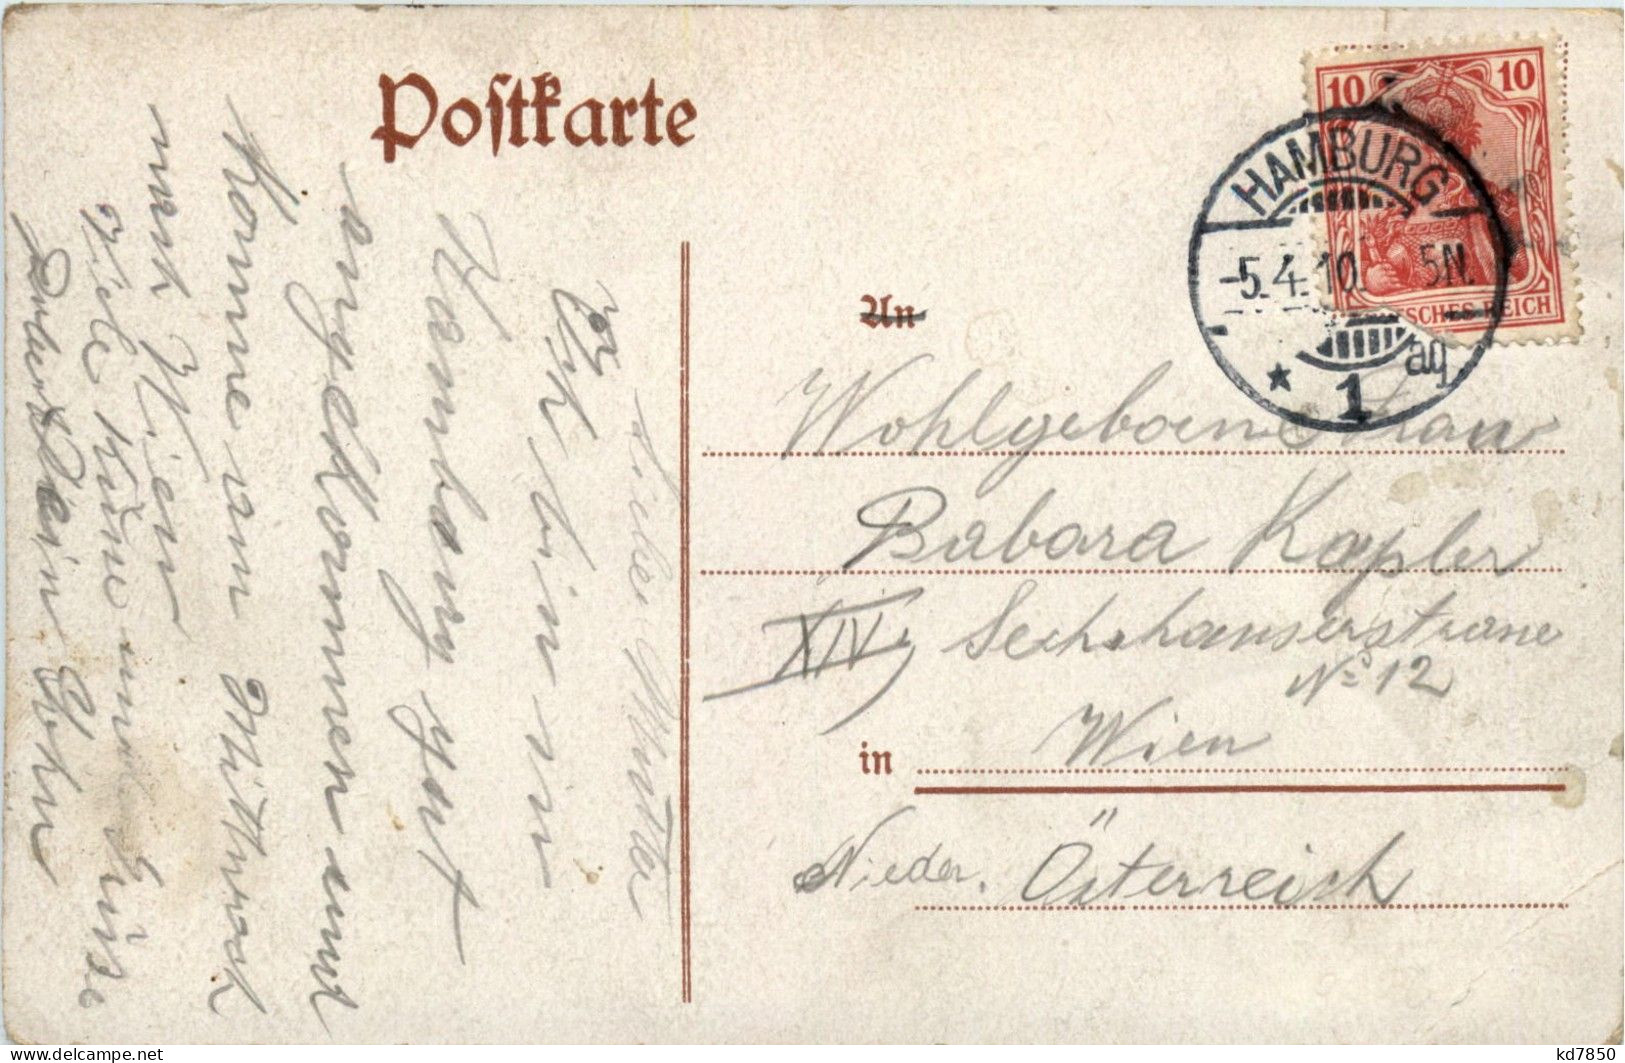 Postkarte
10 10
DEUTSCHES REICH
HAMBURG
-5.4.10. 5N.
* 1 aq
An
Wohlgeborne Frau
Babara Kapler
XIV, Sechshauserstrasse
No 12
in Wien
Nieder. Österreich
Liebe Mutter
Ich bin in
Hamburg gut
angekommen und
komme am Mittwoch
nach Wien
Viele Küße und Grüße
Dein Sohn
kd7850